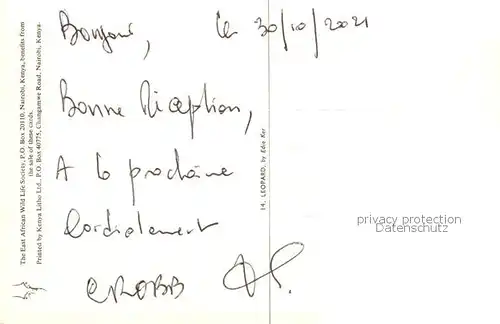 Bonjour,
le 30/10/2021
Bonne Réception,
A la prochaine
Cordialement
CROBB
The East African Wild Life Society, P.O. Box 20110, Nairobi, Kenya, benefits from
the sale of these cards.
Printed by Kenya Litho Ltd., P.O. Box 40775, Changamwe Road, Nairobi, Kenya.
14. LEOPARD, by Edie Ker
privacy protection
Datenschutz